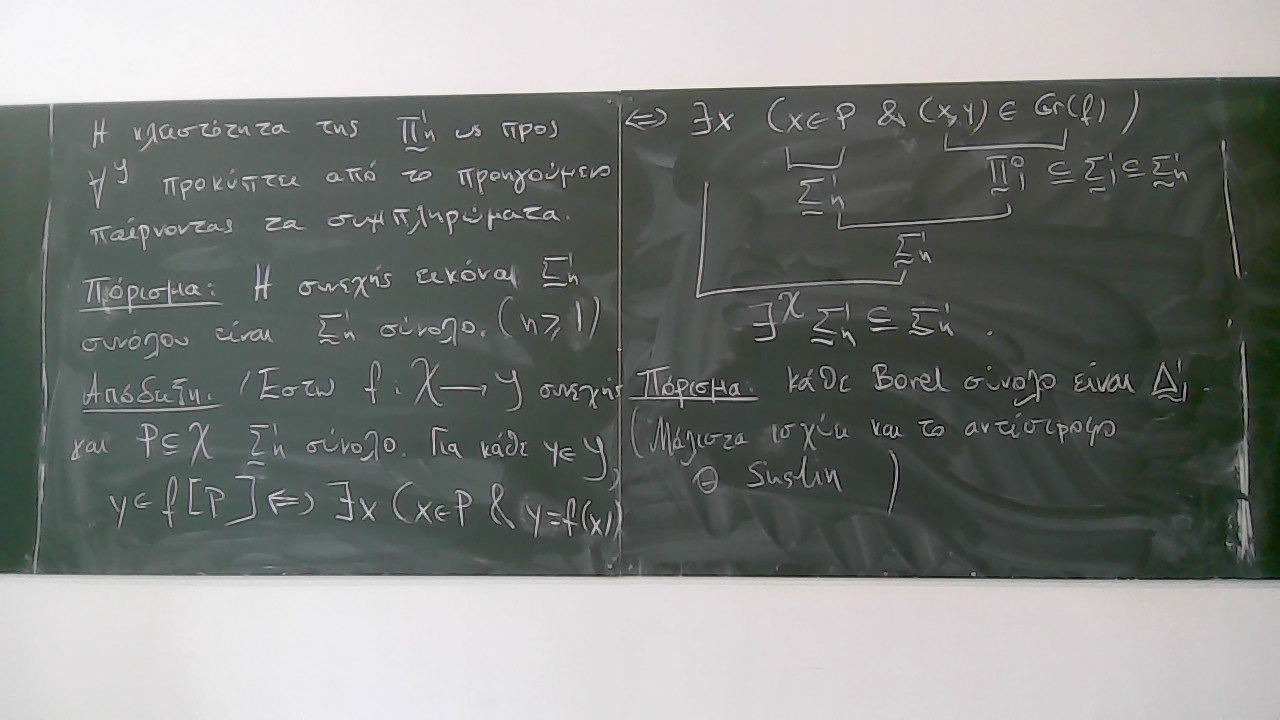 Η κλειστότητα της Π̰¹ₙ ως προς
∀^𝒴 προκύπτει από το προηγούμενο
παίρνοντας τα συμπληρώματα.
Πόρισμα: Η συνεχής εικόνα Σ̰¹ₙ
συνόλου είναι Σ̰¹ₙ σύνολο. (n ≥ 1)
Απόδειξη: Έστω f : 𝒳 → 𝒴 συνεχής
και P ⊆ 𝒳 Σ̰¹ₙ σύνολο. Για κάθε y ∈ 𝒴,
y ∈ f[P] ⇔ ∃x (x ∈ P & y = f(x))
⇔ ∃x (x ∈ P & (x,y) ∈ Gr(f))
Σ̰¹ₙ Π̰⁰₁ ⊆ Σ̰¹₁ ⊆ Σ̰¹ₙ
Σ̰¹ₙ
∃^𝒳 Σ̰¹ₙ ⊆ Σ̰¹ₙ.
Πόρισμα: κάθε Borel σύνολο είναι Δ̰¹₁.
(Μάλιστα ισχύει και το αντίστροφο
Θ Suslin )